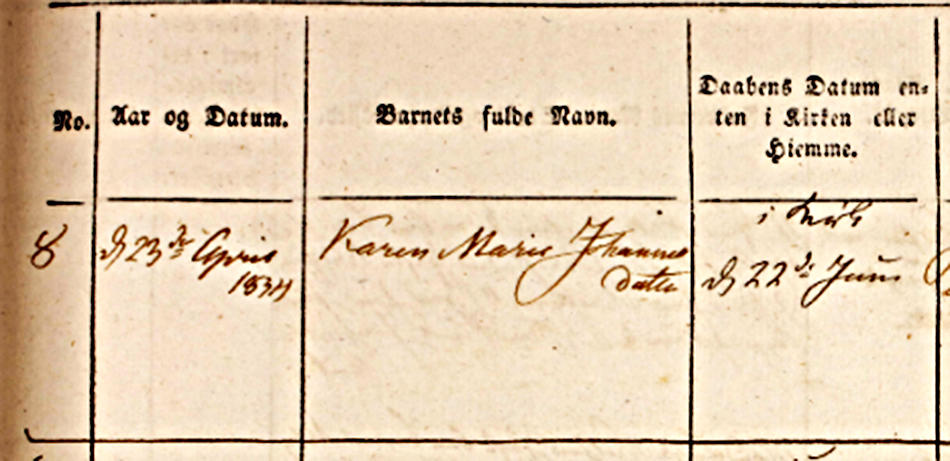 No.
Aar og Datum.
Barnets fulde Navn.
Daabens Datum en=
ten i Kirken eller
Hiemme.
8
d 23de April
1834
Karen Marie Johannes
datter
i Kirk
d 22de Juni